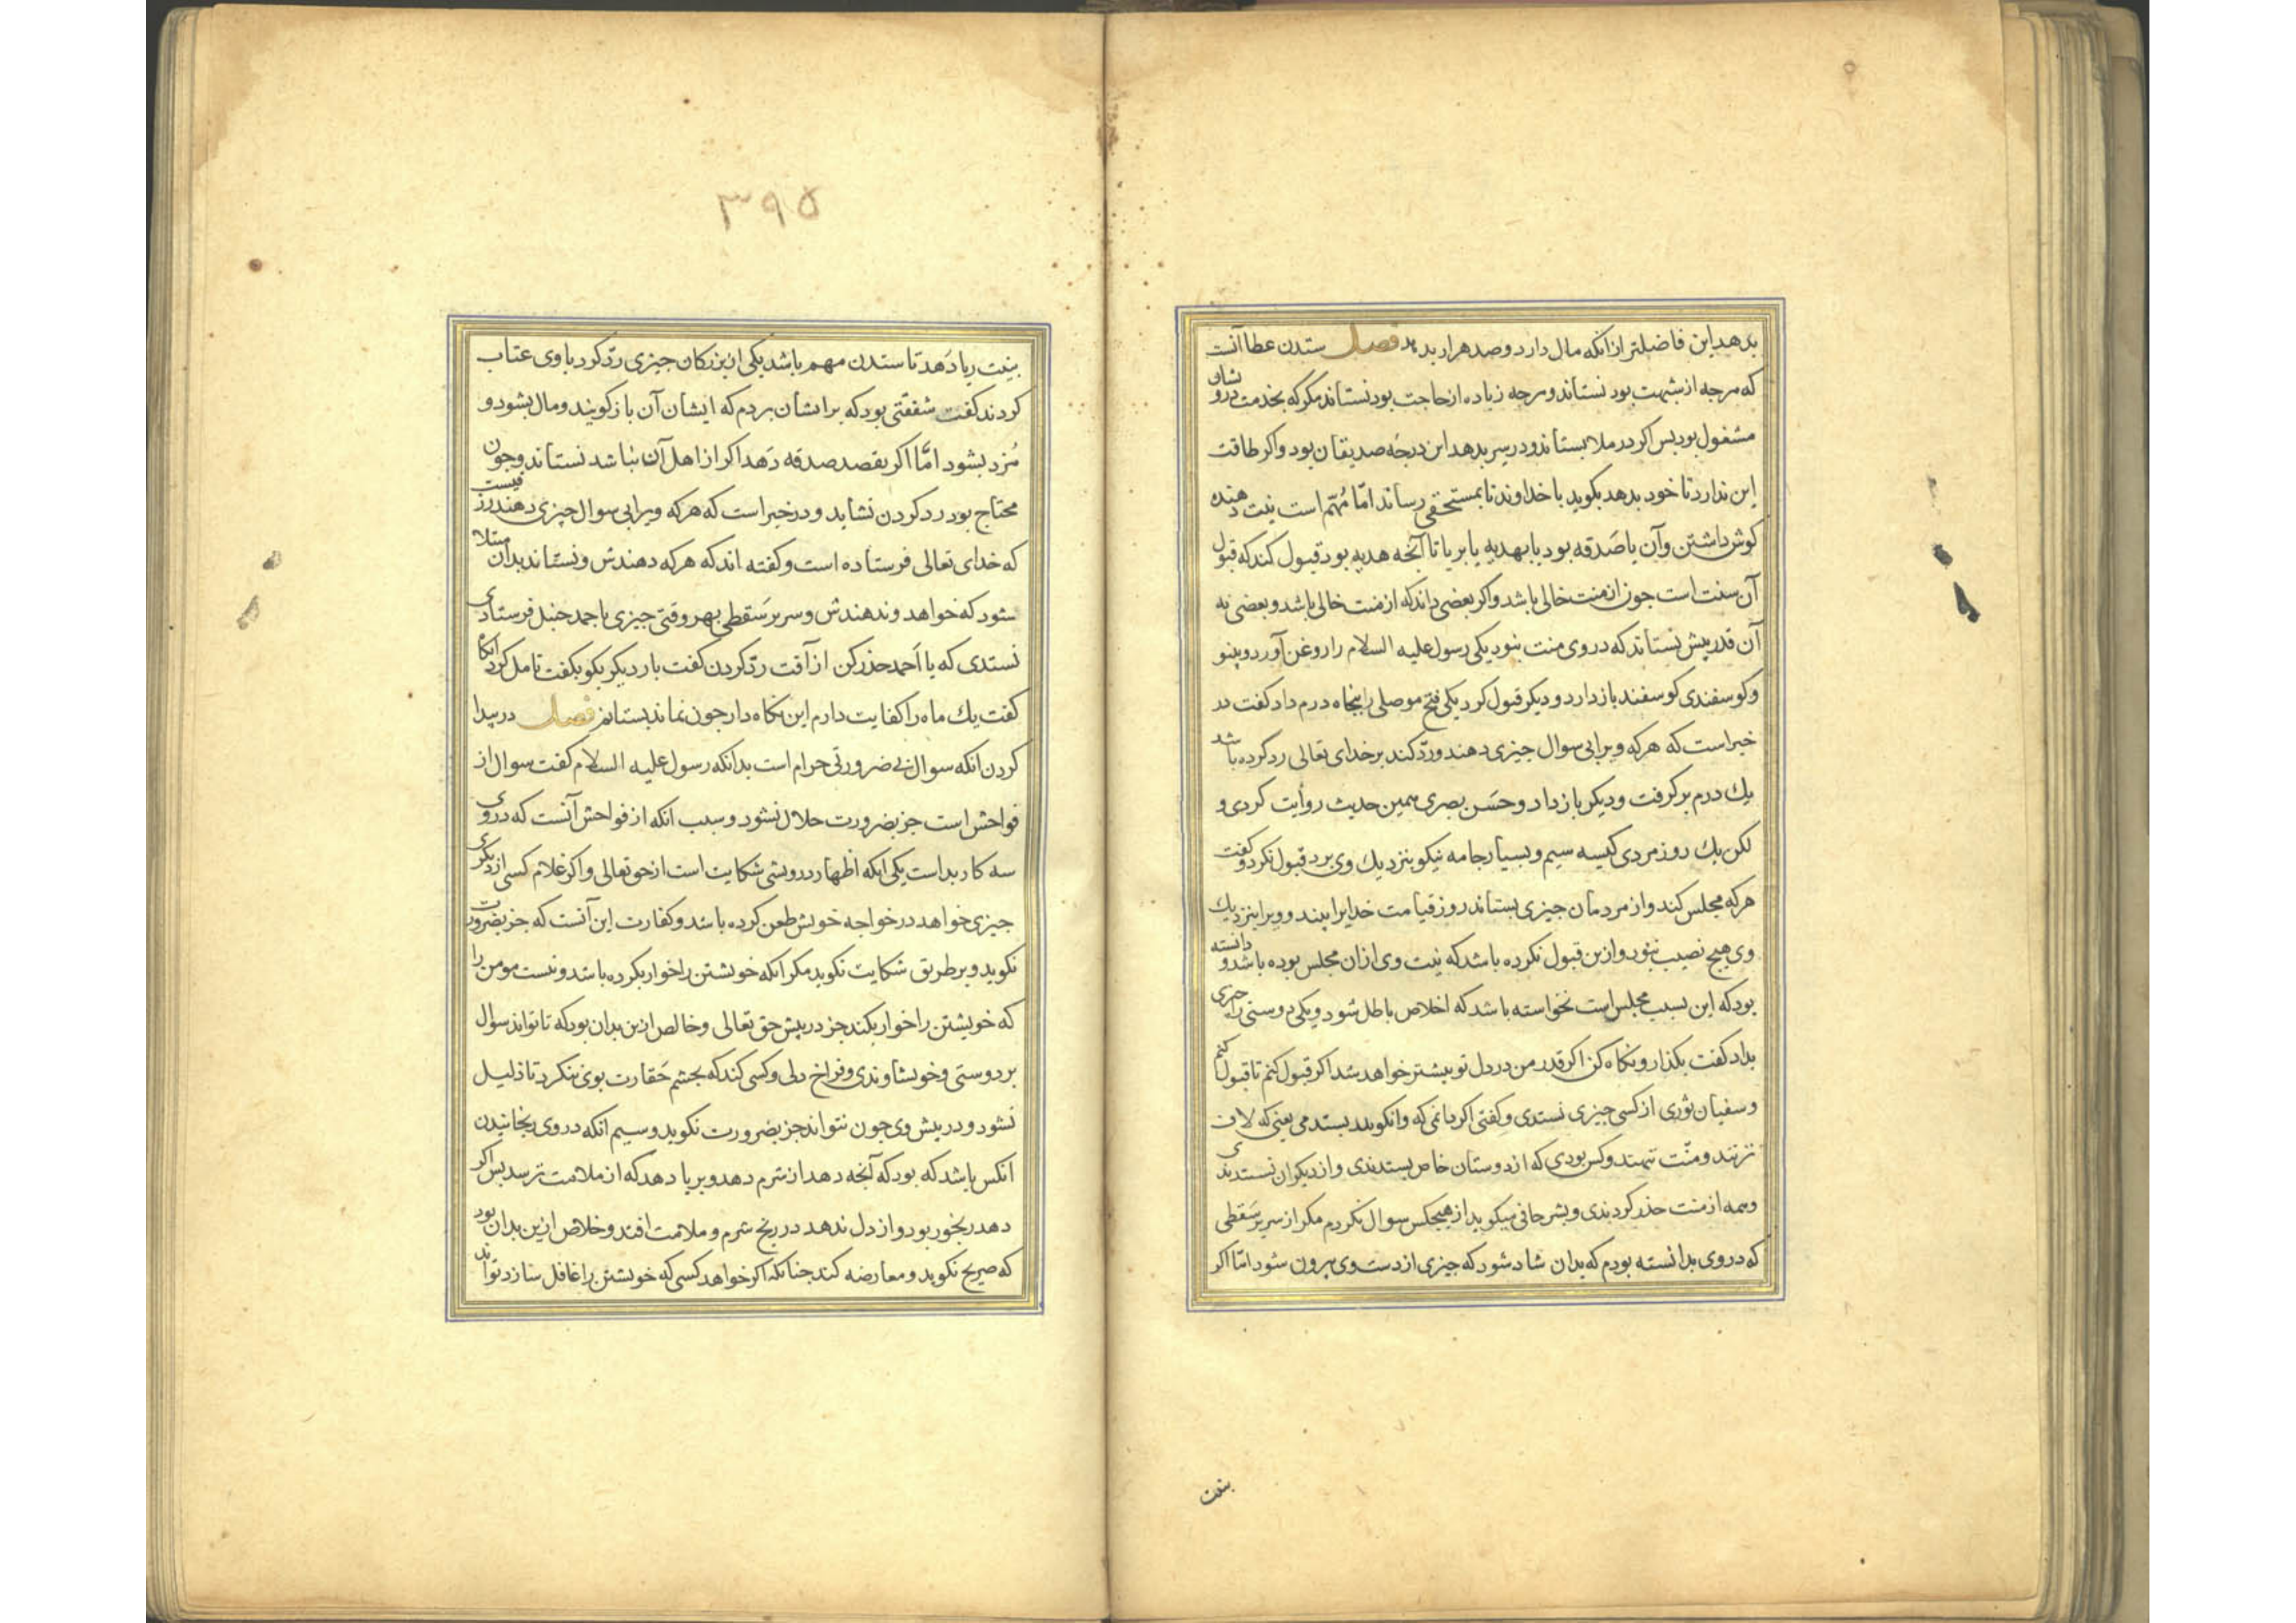 بدهد این فاضلتر از انکه مال دارد و صد هزار بدهد فصل ستدن عطا آنست
که هرجه از شبهت بود نستاند و هرجه زیاده از حاجت بود نستاند مکر که بخدمت درویشان
مشغول بود بس اکر در ملا بستاند و در سر بدهد این درجهٔ صدیقان بود و اکر طاقت
این ندارد تا خود بدهد بکوید با خداوند تا بمستحقی رساند امّا مُهمّ است نیت دهنده
کوش داشتن و آن یا صَدقه بود یا بهدیه یا بریا تا آنجه هدیه بود قبول کند که قبول
آن سنت است جون از منت خالی باشد و اکر بعضی داند که از منت خالی باشد و بعضی نه
آن قدر بیش نستاند که در وی منت نبود یکی رسول علیه السلام را روغن آورد و بینو
و کوسفندی کوسفند باز داد و دیکر قبول کرد یکی فتح موصلی را بنجاه درم داد کفت در
خبر است که هرکه ویرا بی سوال جیزی دهند و ردّ کند بر خدای تعالی رد کرده باشد
یك درم بر کرفت و دیکر باز داد و حسَن بصری همین حدیث روأیت کردی و
لکن یك روز مردی کیسه سیم و بسیار جامه نیکو بنزدیك وی برد قبول نکرد و کفت
هرکه مجلس کند و از مردمان جیزی بستاند روز قیامت خدایرا بیند و ویرا بنزدیك
وی هیج نصیب نبود و ازین قبول نکرده باشد که نیت وی ازان مجلس بوده باشد و دانسته
بود که این بسبب مجلس است نخواسته باشد که اخلاص باطل شود و یکی دوستی را جیزی
بداد کفت بکذار و نکاه کن اکر قدر من در دل تو بیشتر خواهد شد اکر قبول کنم تا قبول کنم
و سفیان ثوری از کسی جیزی نستدی و کفتی اکر دانمی که وا نکویند بستدمی یعنی که لاف
نزنند و منّت ننهند و کس بودی که از دوستان خاص بستدندی و از دیکران نستدندی
و همه از منت حذر کردندی و بشر حافی میکوید از هیجکس سوال نکردم مکر از سری سَقطی
که در وی بدانسته بودم که بدان شاد شود که جیزی از دست وی برون شود امّا اکر
بنیت
۳۹۵
بنیت ریا دَهد تا ستدن مهم باشد یکی از بزرکان جیزی ردّ کرد با وی عتاب
کردند کفت شفقتی بود که بر ایشان بردم که ایشان آن باز کویند و مال بشود و
مُزد بشود امّا اکر بقصد صدقه دَهد اکر از اهل آن نباشد نستاند وجون
محتاج بود رد کردن نشاید و در خبر است که هرکه ویرا بی سوال جیزی دهند رزقیست
که خدای تعالی فرستاده است و کفته اند که هرکه دهندش و نستاند بدان مبتلا
شود که خواهد و ندهندش و سری سَقطی بهر وقتی جیزی باحمد حنبل فرستادی
نستدی که یا اَحمد حذر کن از آفت ردّ کردن کفت بار دیکر بکو بکفت تامل کرد آنکاه
کفت یك ماه را کفایت دارم این نکاه دار جون نماند بستانم فصل در بیدا
کردن انکه سوال بی ضرورتی حرام است بدانکه رسول علیه السلام کفت سوال از
فواحش است جز بضرورت حلال نشود و سبب انکه از فواحش آنست که در وی
سه کار بد است یکی انکه اظهار درویشی شکایت است از حق تعالی و اکر غلام کسی از دیکری
جیزی خواهد در خواجه خویش طعن کرده باشد و کفارت این آنست که جز بضرورت
نکوید و بر طریق شکایت نکوید مکر انکه خویشتن را خوار بکرده باشد و نیست مومن را
که خویشتن را خوار بکند جز در بیش حق تعالی و خالص ازین بدان بود که تا تواند سوال
بر دوستی و خویشاوندی و فراخ دلی و کسی کند که بجشم حَقارت بوی ننکرد تا ذلیل
نشود و در بیش وی جون نتواند جز بضرورت نکوید و سیم انکه در وی رنجانیدن
انکس باشد که بود که آنجه دهد از شرم دهد و بریا دهد که از ملامت ترسد بس اکر
دهد رنجور بود و از دل ندهد در رنج شرم و ملامت افتد و خلاص ازین بدان بود
که صریح نکوید و معارضه کند جنانکه اکر خواهد کسی که خویشتن را غافل سازد تواند